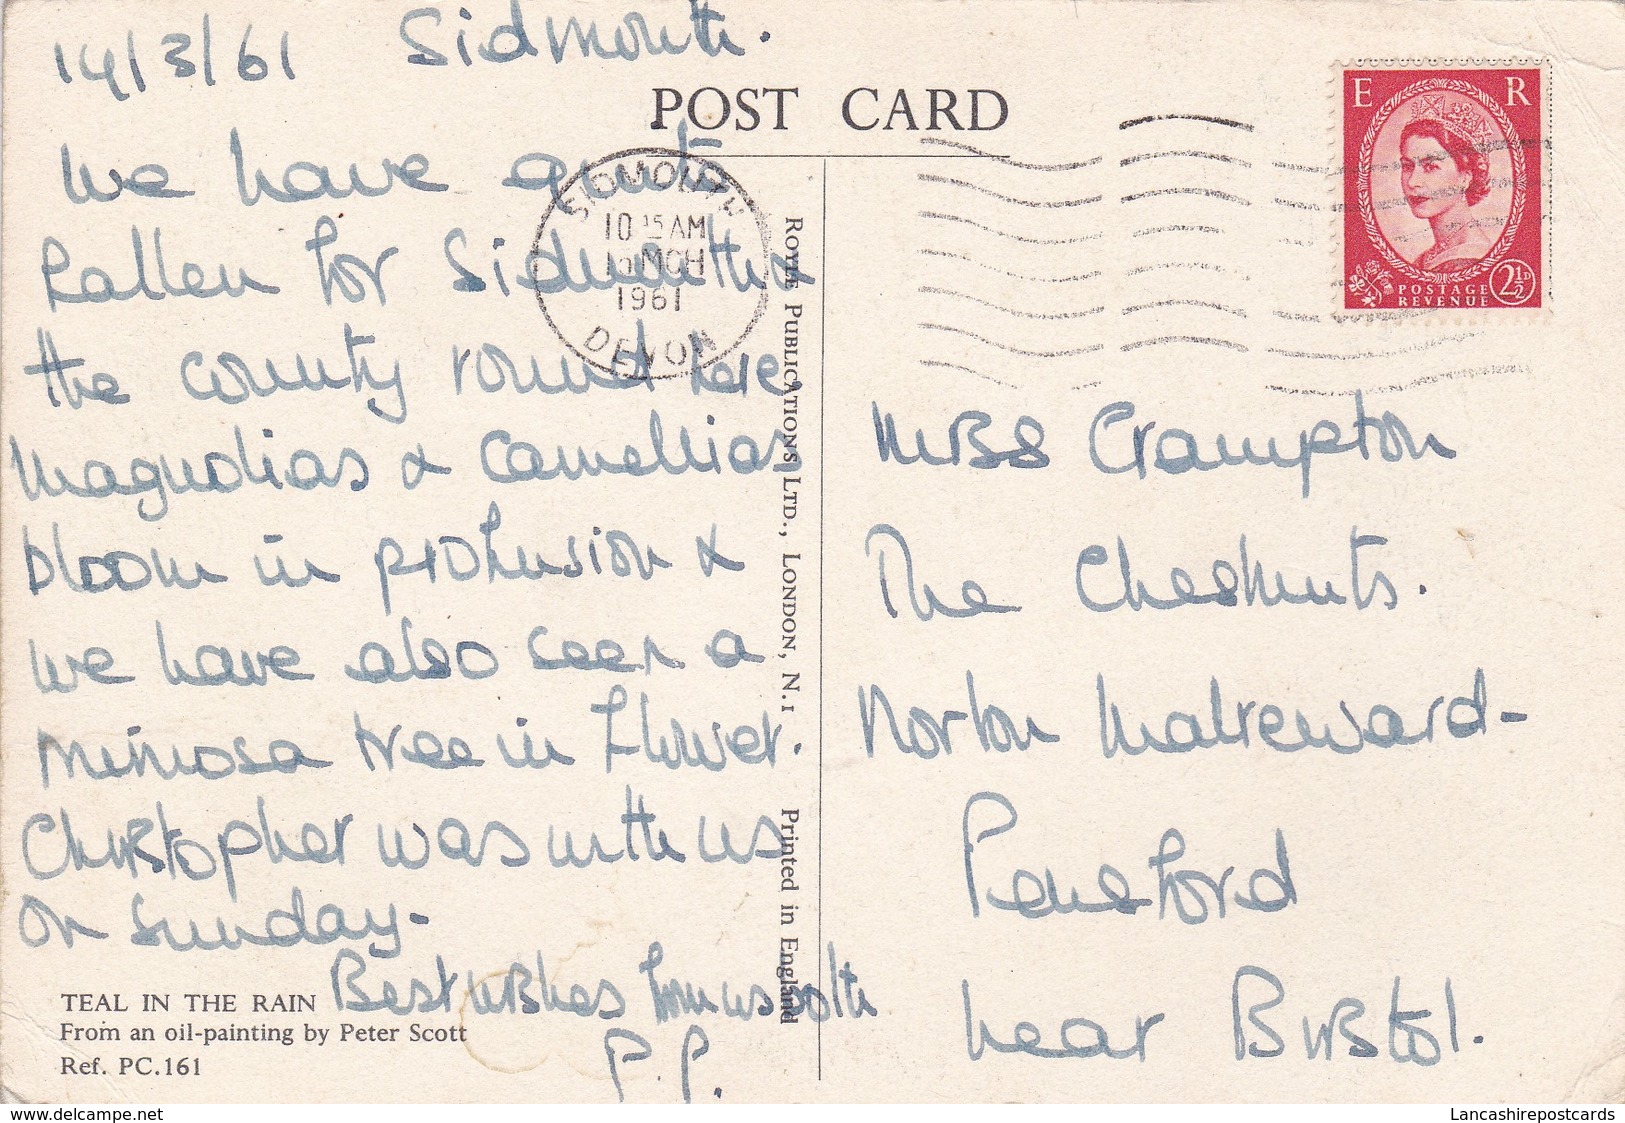 14/3/61 Sidmouth.
POST CARD
We have quite
fallen for Sidmouth &
the county round here
Magnolias & Camellias
bloom in profusion &
we have also seen a
mimosa tree in flower.
Christopher was with us
on Sunday-
Best wishes from us both
P.P.
TEAL IN THE RAIN
From an oil-painting by Peter Scott
Ref. PC.161
SIDMOUTH
10 15 AM
MCH
1961
DEVON
ROYLE PUBLICATIONS LTD., LONDON, N.1 Printed in England
E R
POSTAGE
REVENUE
2½D
Miss Crampton
The Chestnuts.
Norton Malreward-
Pensford
near Bristol.
www.delcampe.net
Lancashirepostcards